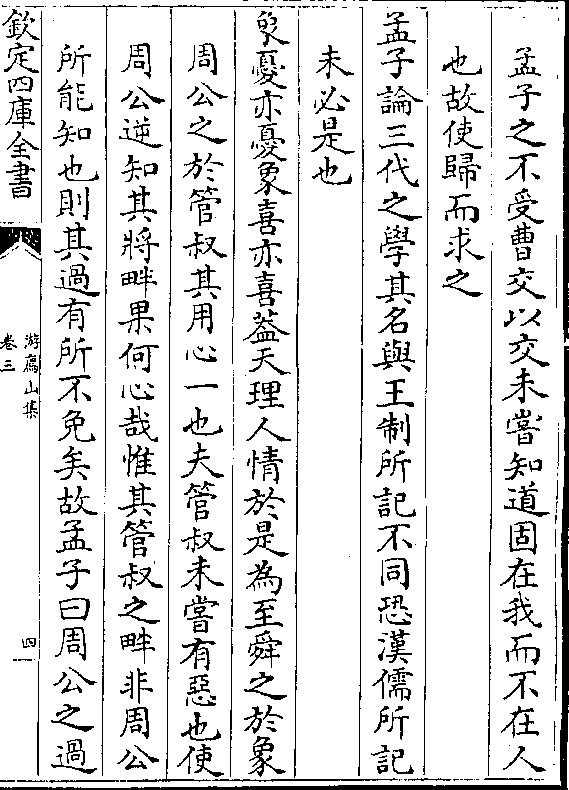 孟子之不受曹交以交未嘗知道固在我而不在人
也故使歸而求之
孟子論三代之學其名與王制所記不同恐漢儒所記
未必是也
象憂亦憂象喜亦喜葢天理人情於是為至舜之於象
周公之於管叔其用心一也夫管叔未嘗有惡也使
周公逆知其將畔果何心哉惟其管叔之畔非周公
所能知也則其過有所不免矣故孟子曰周公之過
欽定四庫全書
游廌山集
卷三
四